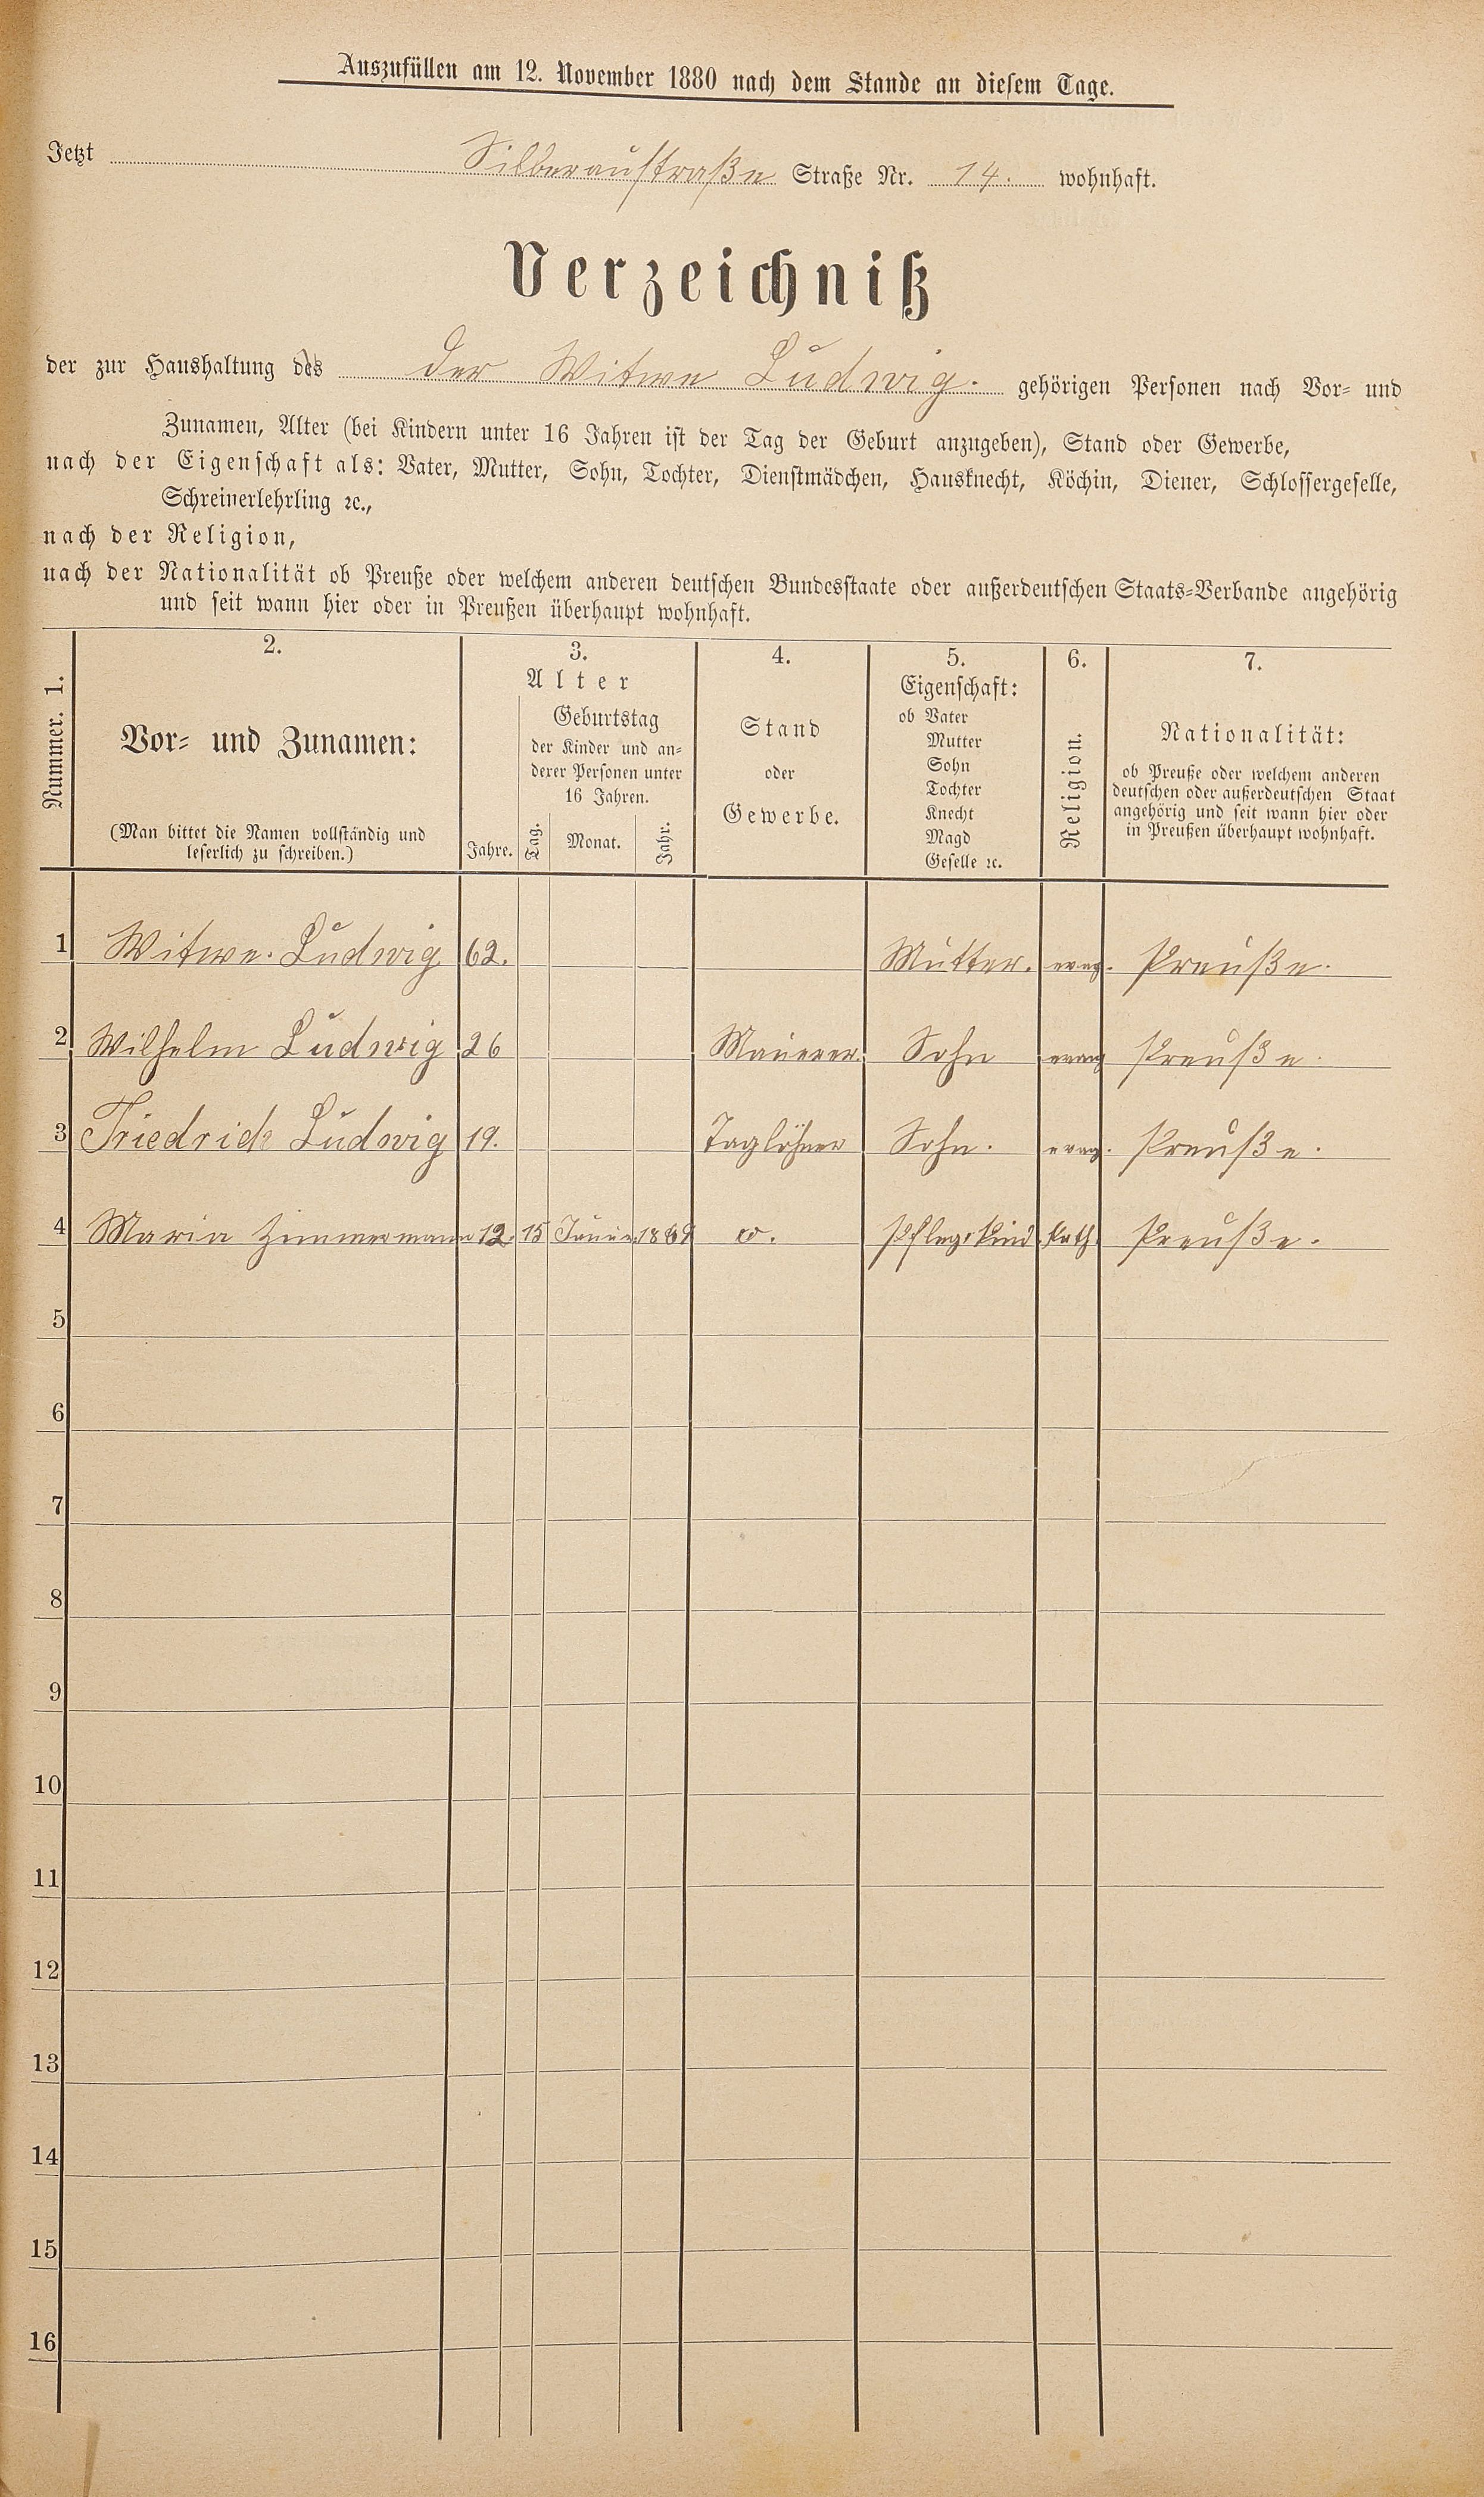 Auszufüllen am 12. November 1880 nach dem Stande an diesem Tage.
Jetzt Silberaustraße Straße Nr. 14. wohnhaft.
Verzeichniß
der zur Haushaltung des der Witwe Ludwig. gehörigen Personen nach Vor- und
Zunamen, Alter (bei Kindern unter 16 Jahren ist der Tag der Geburt anzugeben), Stand oder Gewerbe,
nach der Eigenschaft als: Vater, Mutter, Sohn, Tochter, Dienstmädchen, Hausknecht, Köchin, Diener, Schlossergeselle,
Schreinerlehrling ꝛc.,
nach der Religion,
nach der Nationalität ob Preuße oder welchem anderen deutschen Bundesstaate oder außerdeutschen Staats-Verbande angehörig
und seit wann hier oder in Preußen überhaupt wohnhaft.
Nummer. 1.
2.
Vor- und Zunamen:
(Man bittet die Namen vollständig und
leserlich zu schreiben.)
3.
Alter
Jahre.
Geburtstag
der Kinder und an-
derer Personen unter
16 Jahren.
Tag. Monat. Jahr.
4.
Stand
oder
Gewerbe.
5.
Eigenschaft:
ob Vater
Mutter
Sohn
Tochter
Knecht
Magd
Geselle ꝛc.
6.
Religion.
7.
Nationalität:
ob Preuße oder welchem anderen
deutschen oder außerdeutschen Staat
angehörig und seit wann hier oder
in Preußen überhaupt wohnhaft.
1 Witwe. Ludwig 62. Mutter. evag. Preuße.
2 Wilhelm Ludwig 26 Mauerer. Sohn evang Preuße.
3 Friedrich Ludwig 19. Taglöhner Sohn. evag. Preuße.
4 Maria Zimmermann 12. 15 1869 Pflegekind kath. Preuße.
5
6
7
8
9
10
11
12
13
14
15
16